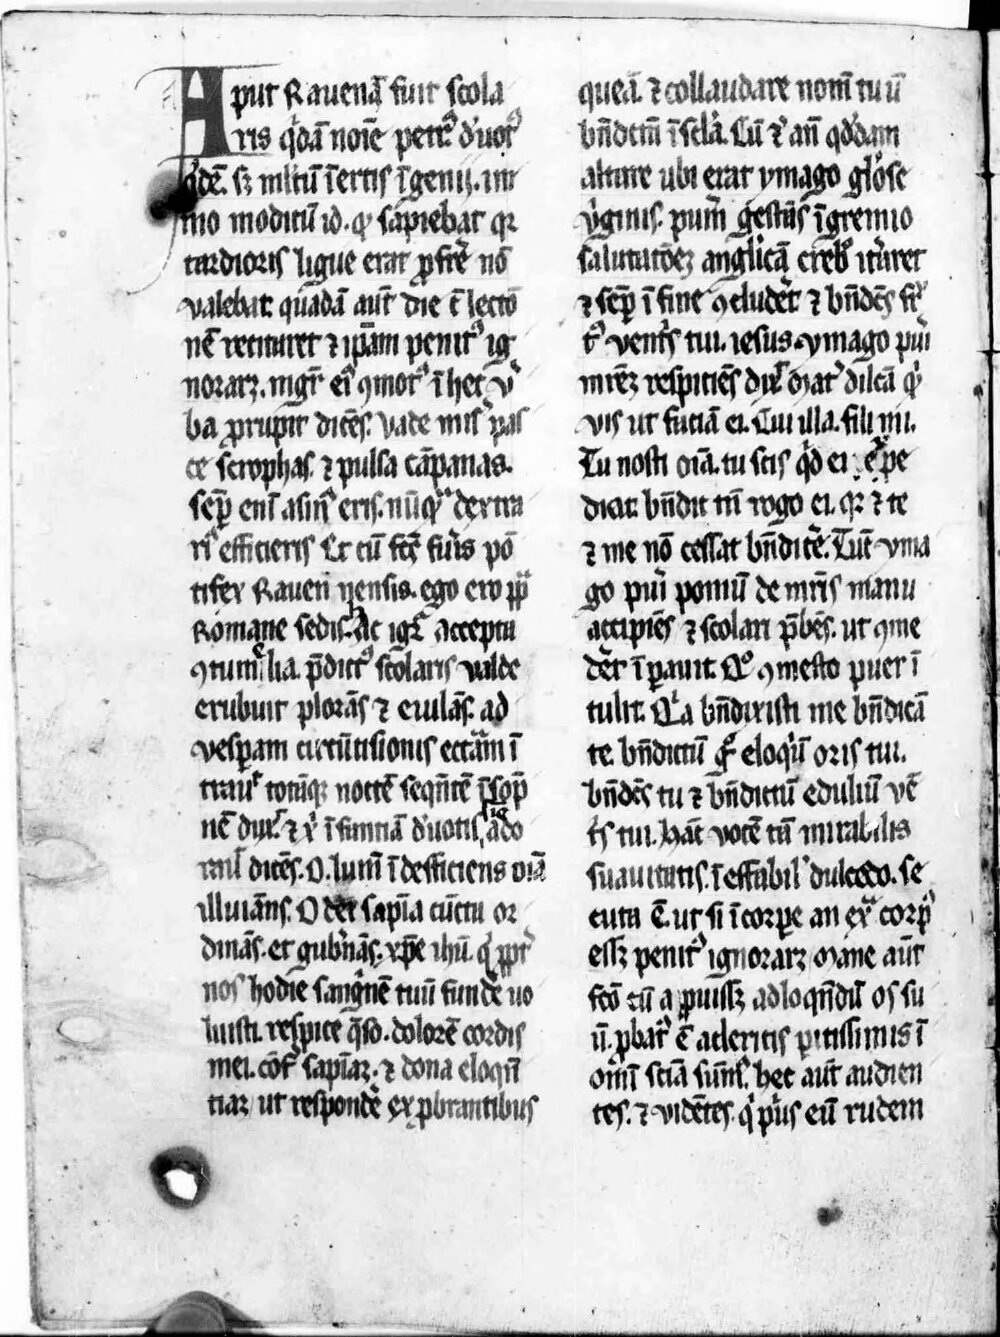 Aput Rauenā fuit scola
ris q̇dā noīe petrꝰ d̾uotꝰ
q̇dē. sꝫ mltū īertis īgenij. im
mo modicū id. qḋ sapiebat qꝛ
tardioris ligue erat ꝓfr̄e nō
valebat. quadā aūt die cū lectō
nē recitaret ⁊ ip̄am penitꝰ ig
norarꝫ. mgr̄ eiꝰ ꝯmotꝰ ī hec v̾
ba ꝓrupit dicēs. vade mis̾ pas
ce scrophas. ⁊ pulsa cāpanas.
semꝑ enī asinꝰ eris. nūqᷓ dextra
riꝰ efficieris Et cū fcūs fu̾is pō
tifex Rauen nensis. ego ero pp̄a
Romane sedis. Ac igr̄ accepta
ꝯtumelia. p̄dictꝰ scolaris valde
erubuit plorās ⁊ eiulās. ad
vesꝑam circūcisionis ecc̄am ī
trauit totāqꝫ noctē seqn̄tē īsop̄
nē dux̾. ⁊ x̾ īfantiā d̾uotis. ado
rauit dicēs. O lum̄ īdefficiens oīa
illuīans. O dei sapīa cūcta or
dinās. et gub̾nās. xp̄e ihū. q̇ ꝓpt̾
nos hodie sangnē tuū fund̾e uo
luisti. respice q̄so. dolorē cordis
mei. cōf̾ sapīaꝫ. ⁊ dona eloqn̄
tiaꝫ ut respond̾e exꝓbrantibus
queā. ⁊ collaudare nom̄ tuū
bn̄dcm̄ ī sc̄la. Cū ⁊ an̄ qd̾dam
altare ubi erat ymago gl̾ose
v̾ginis. pum̄ gestās ī gremio
salutatōeꝫ anglicā crebꝰ it̾aret
⁊ semꝑ ī fine ꝯclud̾et ⁊ bn̄dc̄s fr̄c
tꝰ ventris tui. iesus. ymago pu̾i
mr̄eꝫ respiciēs dix̾ mat̾ dilcā qḋ
vis ut faciā ei. Cui illa. fili mi.
Tu nosti oīa. tu scis qḋ ei exꝑe
diat. bn̄dic tn̄ rogo ei. qꝛ ⁊ te
⁊ me nō cessat bn̄dic̾e. Tūc yma
go pu̾i pomū de mr̄is manu
accipiēs ⁊ scolari p̄bēs. ut ꝯme
d̾et īꝑauit. Qͦ ꝯmesto puer ī
tulit. Qa bn̄dixisti me bn̄dicā
te. bn̄dictū g̊ eloqͥū oris tui.
bn̄dc̄s tu ⁊ bn̄dictū eduliū vē
t̾s tui. Hāc vocē tā mirabilis
suauitatis. īeffabilꝰ dulcedo. se
cuta ē. ut si ī corꝑe an exᵃ corpꝰ
essꝫ penitꝰ ignorarꝫ Mane aūt
fcō cū aꝑuissꝫ ad loqn̄dū os su
ū. ꝓbatꝰ ē a clericis ꝑitissimus ī
om̄i sciā sūm̾. hec aūt audien
tes. ⁊ vidētes. q̇ p̾us eū rudem